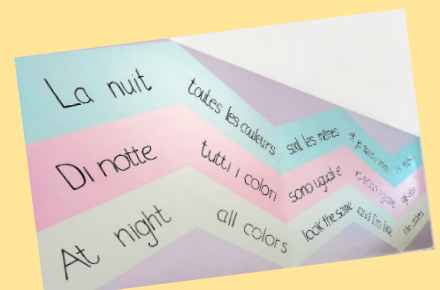 La nuit toutes les couleurs sont les mêmes
Di notte tutti i colori sono uguali e
At night all colors look the same and I'm blue